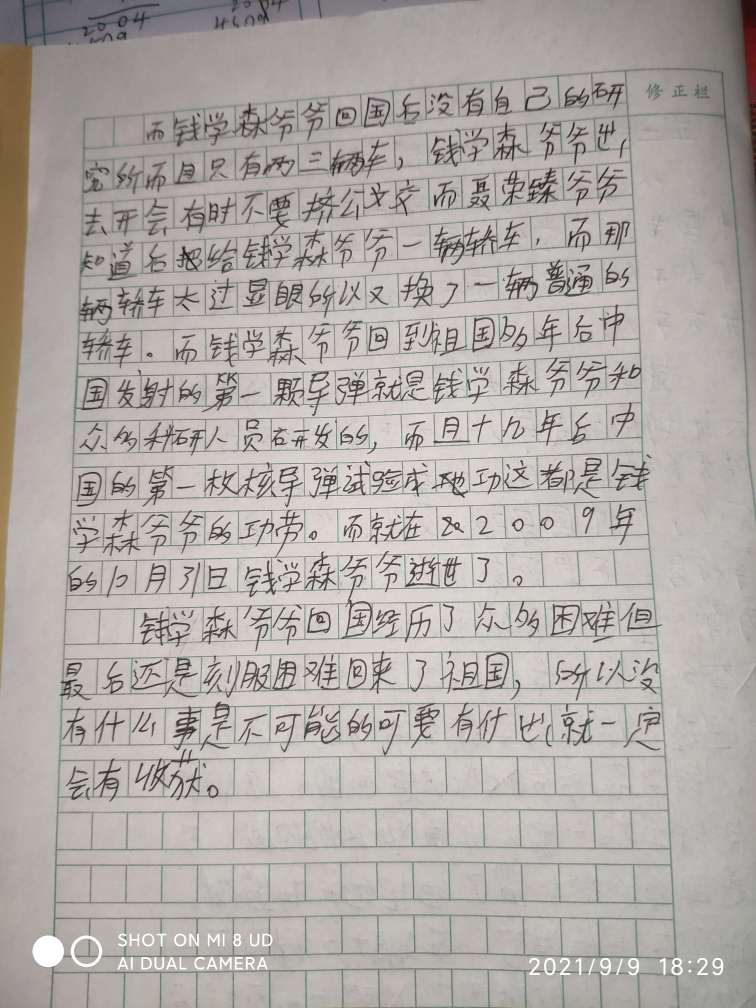 2004
4509
2004
4509
修正栏
而钱学森爷爷回国后没有自己的研
究所而且只有两三辆车，钱学森爷爷出
去开会有时不要挤公交而聂荣臻爷爷
知道后把给钱学森爷爷一辆轿车，而那
辆轿车太过显眼所以又换了一辆普通的
轿车。而钱学森爷爷回到祖国多年后中
国发射的第一颗导弹就是钱学森爷爷和
众多科研人员在开发的，而且十几年后中
国的第一枚核导弹试验成地功这都是钱
学森爷爷的功劳。而就在2009年
的10月31日钱学森爷爷逝世了。
钱学森爷爷回国经历了众多困难但
最后还是刻服困难回来了祖国，所以没
有什么事是不可能的可要有付出就一定
会有收获。
SHOT ON MI 8 UD
AI DUAL CAMERA
2021/9/9 18:29